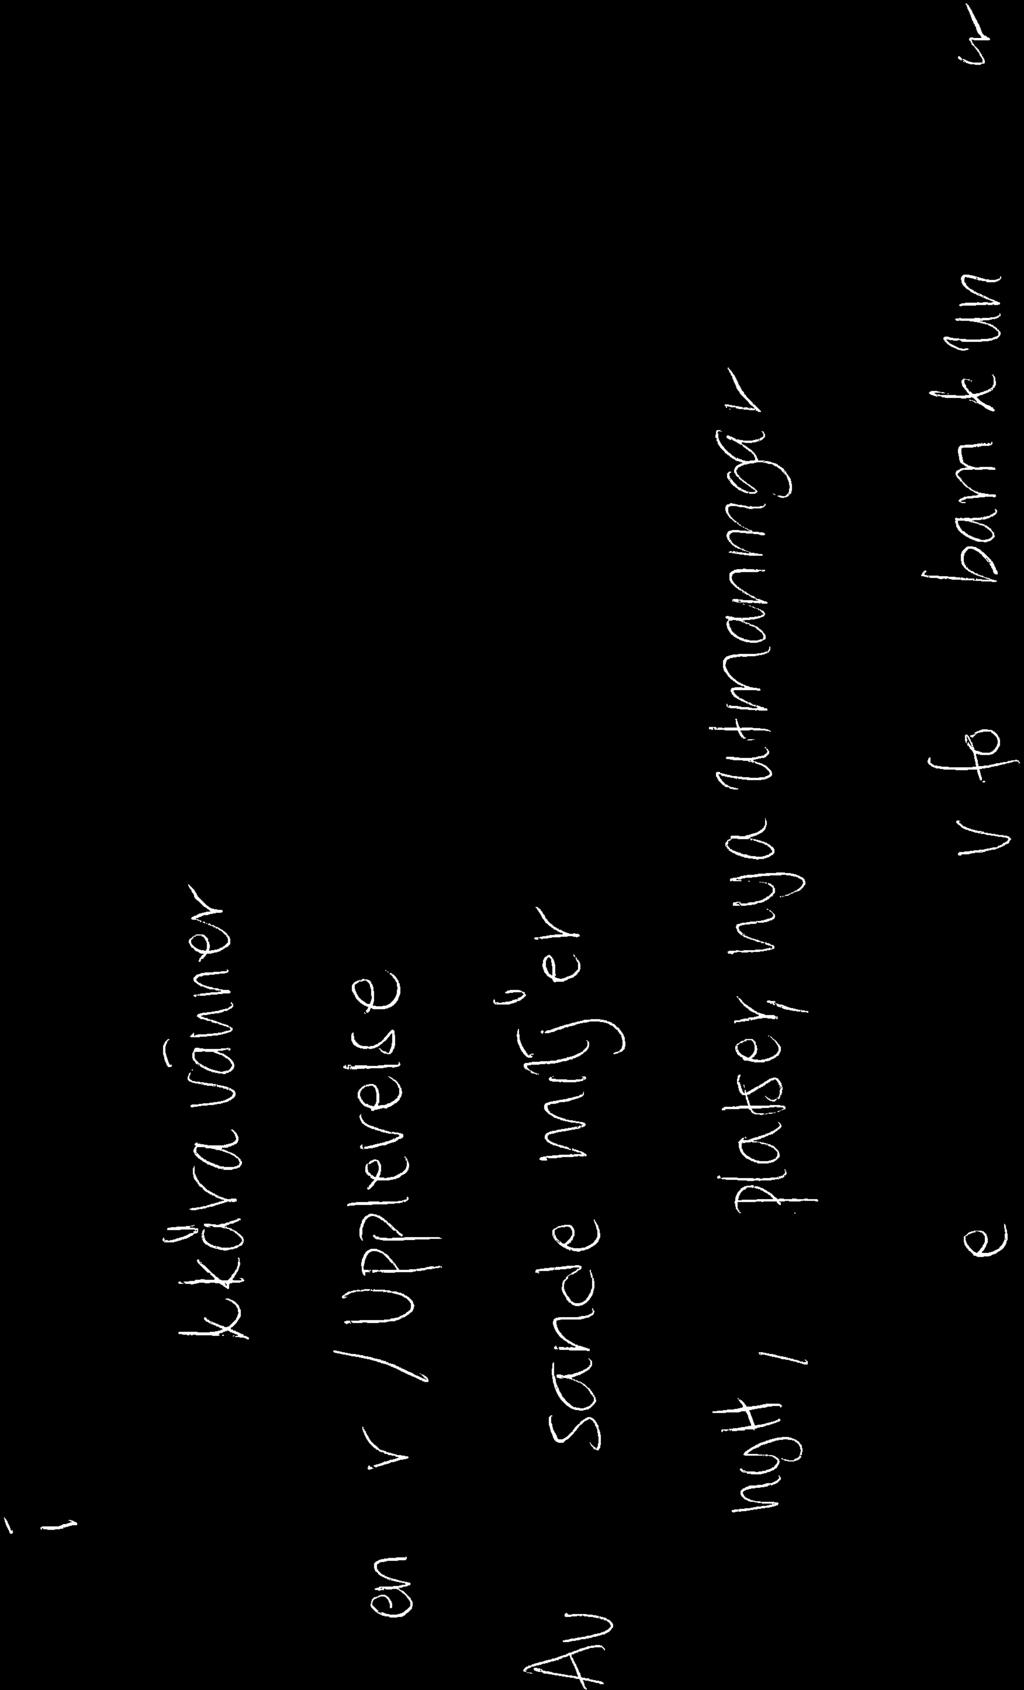 kkära vänner
en v / Upplevelse
Av sande miljöer
nytt, platser, nya utmaningar
v fo barn kun